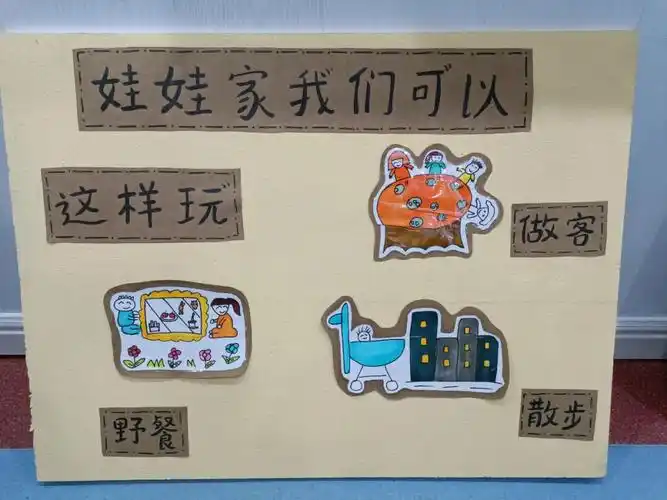 娃娃家我们可以
这样玩
做客
野餐
散步